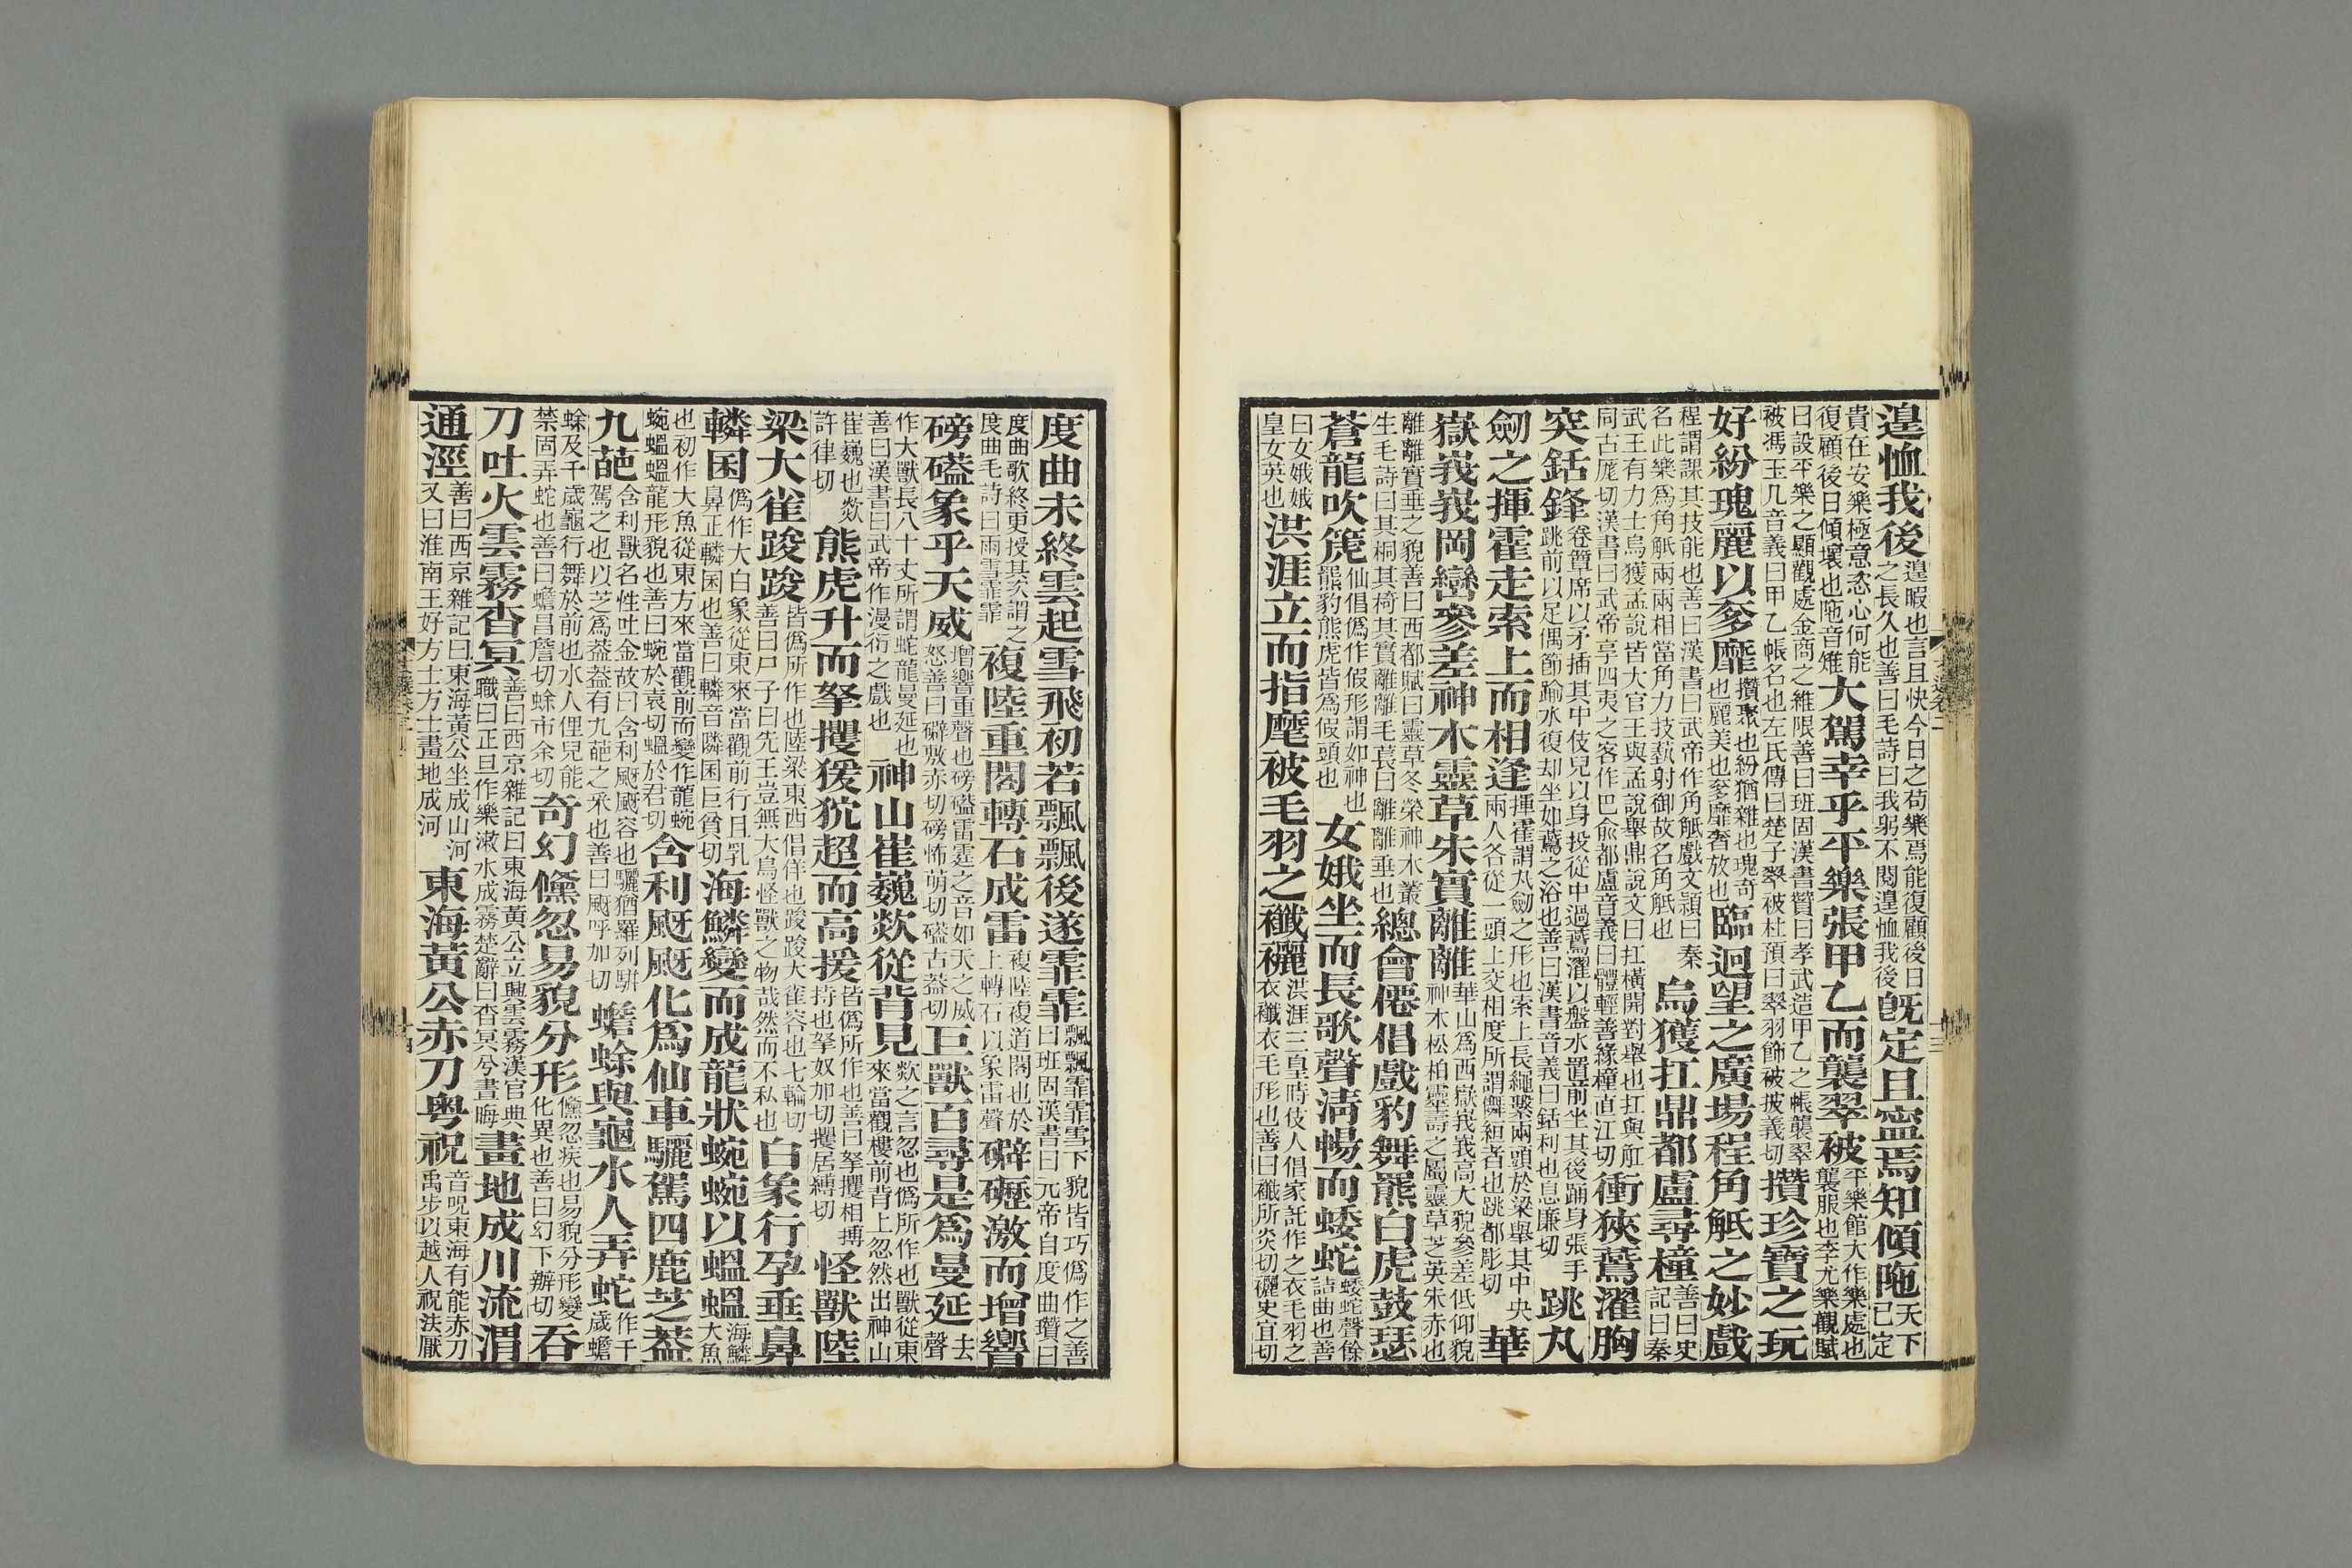 遑恤我後遑暇也言且快今日之苟樂焉能復顧後日
之長久也善曰毛詩曰我躬不閱遑恤我後既定且寧焉知傾陁天下
已定
貴在安樂極意恣心何能
復顧後日傾壞也陁音雉大駕幸乎平樂張甲乙而襲翠被平樂館大作樂處也
襲服也李尤樂觀賦
曰設平樂之顯觀處金商之維限善曰班固漢書贊曰孝武造甲乙之帳襲翠
被馮玉几音義曰甲乙帳名也左氏傳曰楚子翠被杜預曰翠羽飾被披義切攢珍寶之玩
好紛瑰麗以奓靡攢聚也紛猶雜也瑰奇
也麗美也奓靡奢放也臨迥望之廣場程角觝之妙戲
程謂課其技能也善曰漢書曰武帝作角觝戲文頴曰秦
名此樂爲角觝兩兩相當角力技藝射御故名角觝也烏獲扛鼎都盧尋橦善曰史
記曰秦
武王有力士烏獲孟說皆大官王與孟說舉鼎說文曰扛橫開對舉也扛與
同古尨切漢書曰武帝享四夷之客作巴俞都盧音義曰體輕善緣橦直江切衝狹鷰濯胸
突銛鋒卷簟席以矛插其中伎兒以身投從中過鷰濯以盤水置前坐其後踊身張手
跳前以足偶節踰水復却坐如鷰之浴也善曰漢書音義曰銛利也息廉切跳丸
劒之揮霍走索上而相逢揮霍謂丸劒之形也索上長繩繫兩頭於梁舉其中央
兩人各從一頭上交相度所謂儛絙者也跳都彫切華
嶽峩峩岡巒參差神木靈草朱實離離華山爲西嶽峩峩高大貌參差低仰貌
神木松柏靈壽之屬靈草芝英朱赤也
離離實垂之貌善曰西都賦曰靈草冬榮神木叢
生毛詩曰其桐其椅其實離離毛萇曰離離垂也總會僊倡戲豹舞羆白虎鼓瑟
蒼龍吹篪仙倡僞作假形謂如神也
羆豹熊虎皆爲假頭也女娥坐而長歌聲淸暢而蜲蛇蜲蛇聲餘
詰曲也善
曰女娥娥
皇女英也洪涯立而指麾被毛羽之襳襹洪涯三皇時伎人倡家託作之衣毛羽之
衣襳衣毛形也善曰襳所炎切襹史宜切
度曲未終雲起雪飛初若飄飄後遂霏霏飄飄霏霏雪下貌皆巧僞作之善
曰班固漢書曰元帝自度曲瓚曰
度曲歌終更授其次謂之
度曲毛詩曰雨雪霏霏複陸重閣轉石成雷複陸複道閣也於
上轉石以象雷聲礔礰激而增響
磅礚象乎天威增響重聲也磅礚雷霆之音如天之威
怒善曰礔敷赤切磅怖萌切礚古葢切巨獸百尋是爲曼延去
聲
作大獸長八十丈所謂蛇龍曼延也
善曰漢書曰武帝作漫衍之戲也神山崔巍欻從背見欻之言忽也僞所作也獸從東
來當觀樓前背上忽然出神山
崔巍也欻
許律切熊虎升而挐攫猨狖超而高援皆僞所作也善曰挐攫相搏
持也挐奴加切攫居縛切怪獸陸
梁大雀踆踆皆僞所作也陸梁東西倡佯也踆踆大雀容也七輪切
善曰尸子曰先王豈無大鳥怪獸之物哉然而不私也白象行孕垂鼻
轔囷僞作大白象從東來當觀前行且乳
鼻正轔囷也善曰轔音隣囷巨貧切海鱗變而成龍狀蜿蜿以蝹蝹海鱗
大魚
也初作大魚從東方來當觀前而變作龍蜿
蜿蝹蝹龍形貌也善曰蜿於袁切蝹於君切含利颬颬化爲仙車驪駕四鹿芝葢
九葩含利獸名性吐金故曰含利颬颬容也驪猶羅列駢
駕之也以芝爲葢葢有九葩之采也善曰颬呼加切蟾蜍與龜水人弄蛇作千
歲蟾
蜍及千歲龜行舞於前也水人俚兒能
禁固弄蛇也善曰蟾昌詹切蜍市余切奇幻儵忽易貌分形儵忽疾也易貌分形變
化異也善曰幻下辦切吞
刀吐火雲霧杳冥善曰西京雜記曰東海黃公立興雲霧漢官典
職曰正旦作樂漱水成霧楚辭曰杳冥兮晝晦畫地成川流渭
通涇善曰西京雜記曰東海黃公坐成山河
又曰淮南王好方士方士畫地成河東海黃公赤刀粤祝音呪東海有能赤刀
禹步以越人祝法厭